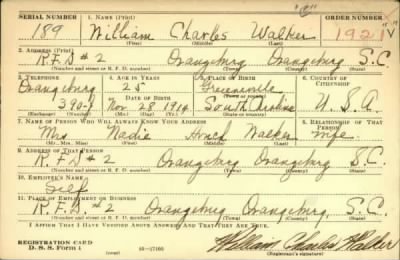 SERIAL NUMBER 1. NAME (Print) ORDER NUMBER
189 William Charles Walker 1921
(First) (Middle) (Last)
2. ADDRESS (Print)
R.F.D # 2 Orangeburg Orangeburg S.C.
(Number and street or R. F. D. number) (Town) (County) (State)
3. TELEPHONE 4. AGE IN YEARS 5. PLACE OF BIRTH 6. COUNTRY OF CITIZENSHIP
Orangeburg 25 Greenville
DATE OF BIRTH
390-J Nov 28 1914 South Carolina U.S.A.
(Exchange) (Number) (Mo.) (Day) (Yr.) (State or country)
7. NAME OF PERSON WHO WILL ALWAYS KNOW YOUR ADDRESS 8. RELATIONSHIP OF THAT PERSON
Mrs Nadie Walker wife
(Mr., Mrs., Miss) (First) (Middle) (Last)
9. ADDRESS OF THAT PERSON
R.F.D # 2 Orangeburg Orangeburg S.C.
(Number and street or R. F. D. number) (Town) (County) (State)
10. EMPLOYER'S NAME
Self
11. PLACE OF EMPLOYMENT OR BUSINESS
R.F.D. # 2 Orangeburg Orangeburg, S.C.
(Number and street or R. F. D. number) (Town) (County) (State)
I AFFIRM THAT I HAVE VERIFIED ABOVE ANSWERS AND THAT THEY ARE TRUE.
REGISTRATION CARD
D. S. S. Form 1 (over) 16-17105 William Charles Walker
(Registrant's signature)